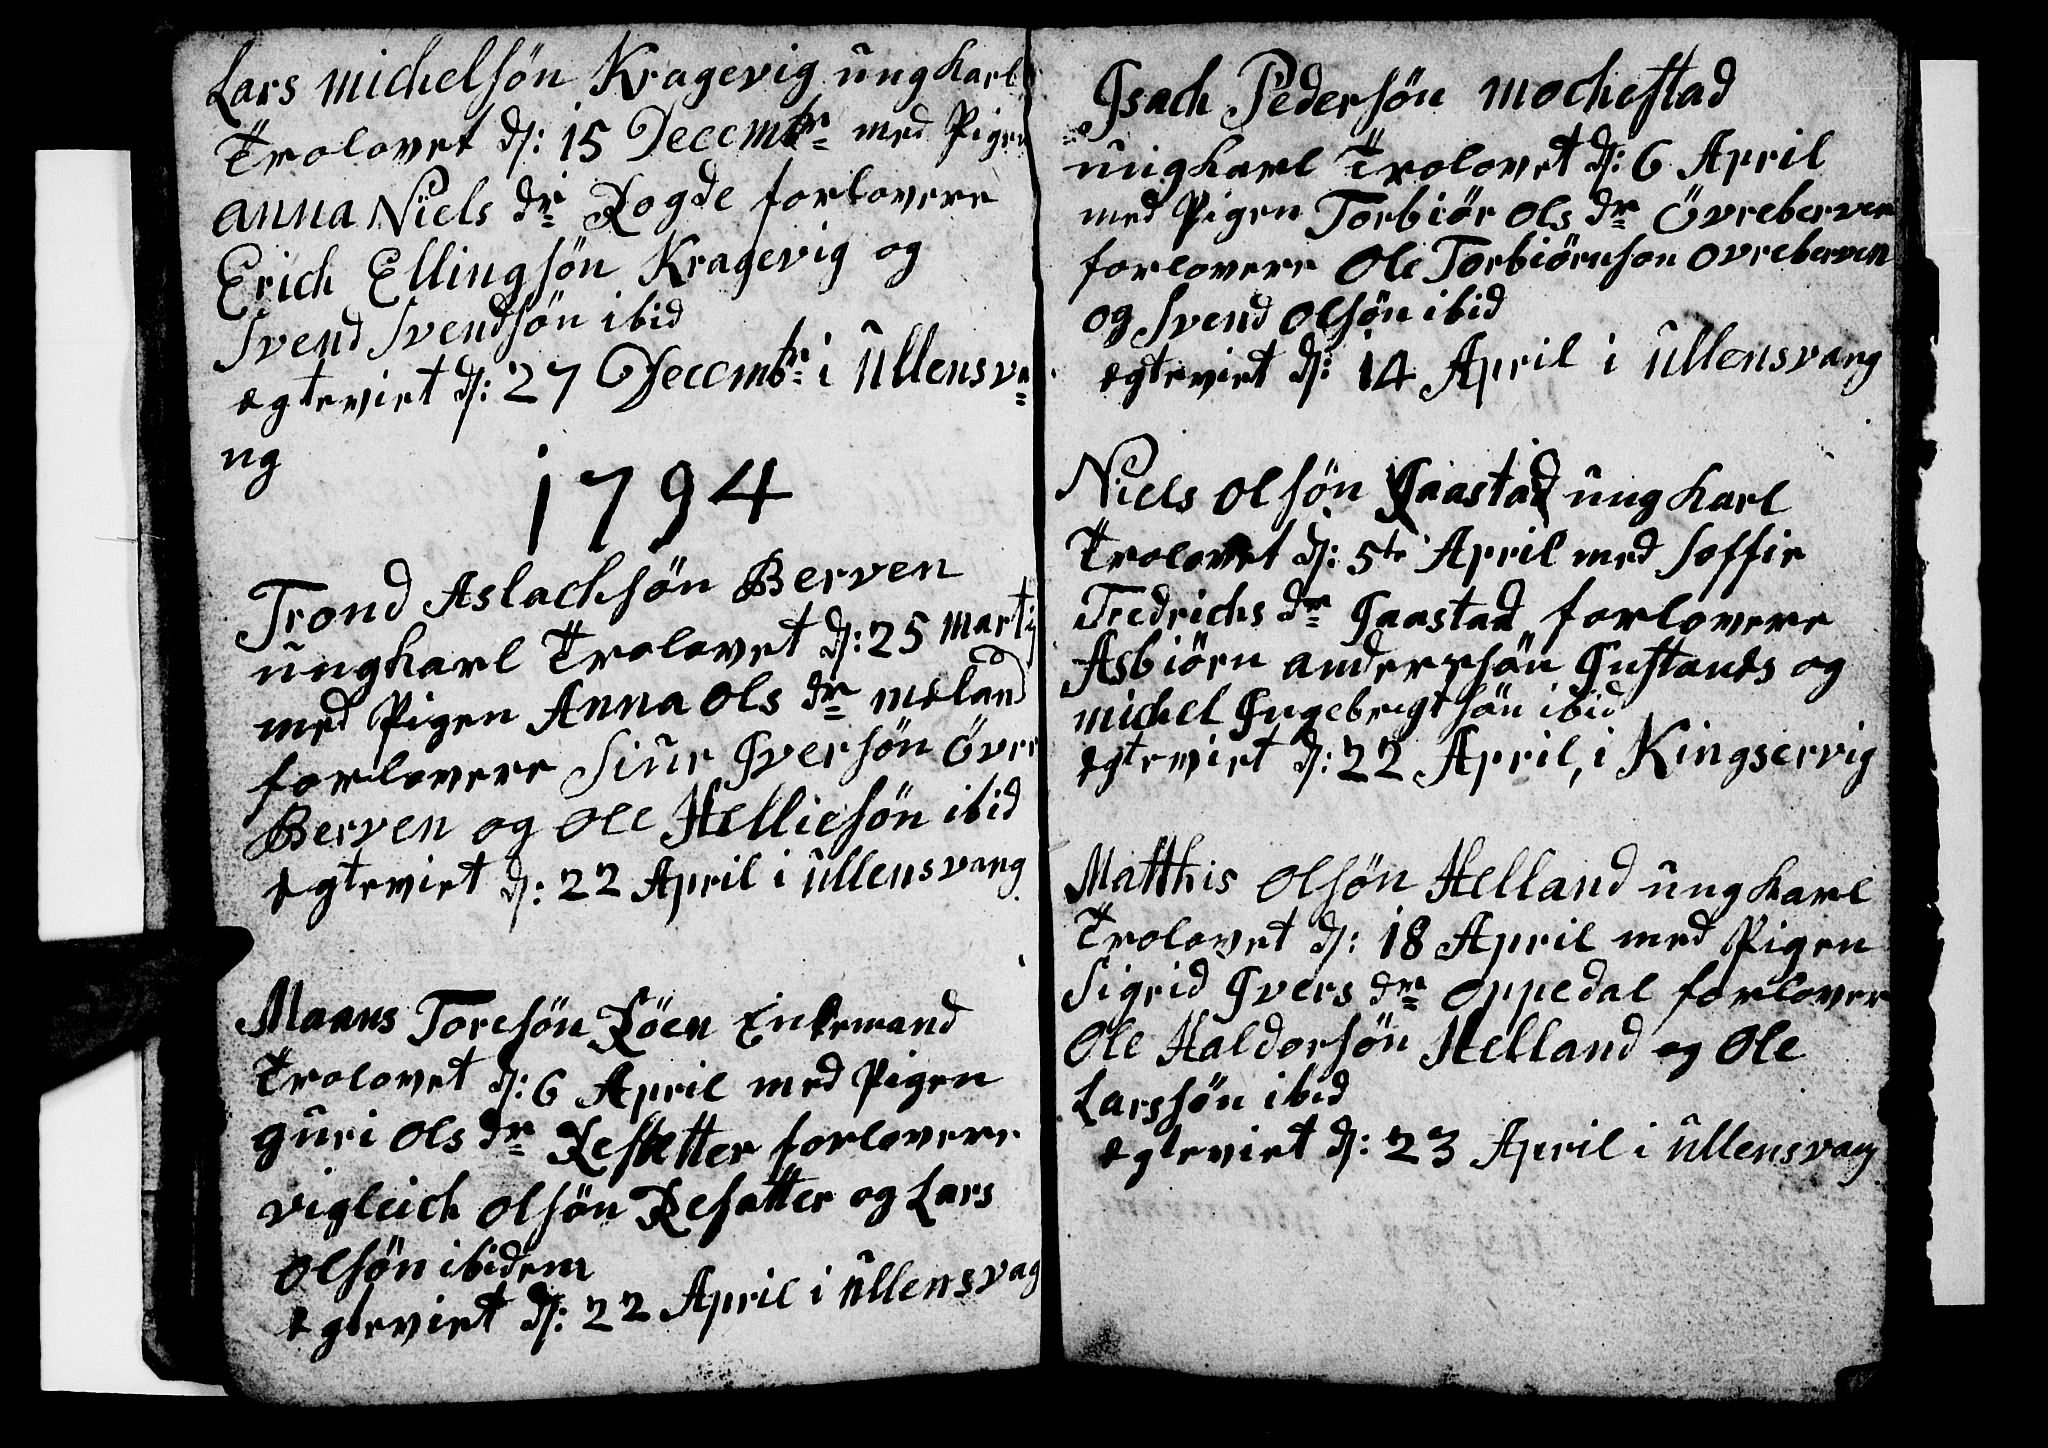 Lars Michelsön Kragevig ungkarl
Trolovet d: 15 Decembr med Pigen
Anna Niels dr Rogde forlovere
Erich Ellingsön Kragevig og
Svend Svendsön ibid
egteviet d: 27 Decembr i Ullensva=
ng
1794
Trond Aslachsön Berven
ungkarl Trolovet d: 25 Martij
med Pigen Anna Ols dr Meland
forlovere Siur Iversön Övre
Berven og Ole Helliesön ibid
egteviet d: 22 April i Ullensvang
Maans Toresön Röen Enkemand
Trolovet d: 6 April med Pigen
Guri Ols dr Resetter forlovere
Vigleich Olsön Resatter og Lars
Olsön ibidem
egteviet d: 22 April i Ullensvag
Isach Pedersön Mochestad
ungkarl Trolovet d: 6 April
med Pigen Torbiör Ols dr Övreberven
forlovere Ole Torbiörnson Ovreberven
og Svend Olsön ibid
egteviet d: 14 April i Ullensvang
Niels Olsön Jaastad ungkarl
Trolovet d: 5te April med Soffie
Fredrichs dr Jaastad forlovere
Asbiörn Andersön Instanes og
Michel Ingebregtsön ibid
egteviet d: 22 April, i Kingservig
Matthis Olsön Helland ungkarl
Trolovet d: 18 April med Pigen
Sigrid Ivers dr Oppedal forlover
Ole Haldorsön Helland og Ole
Larssön ibid
egteviet d: 23 April i Ullensvang